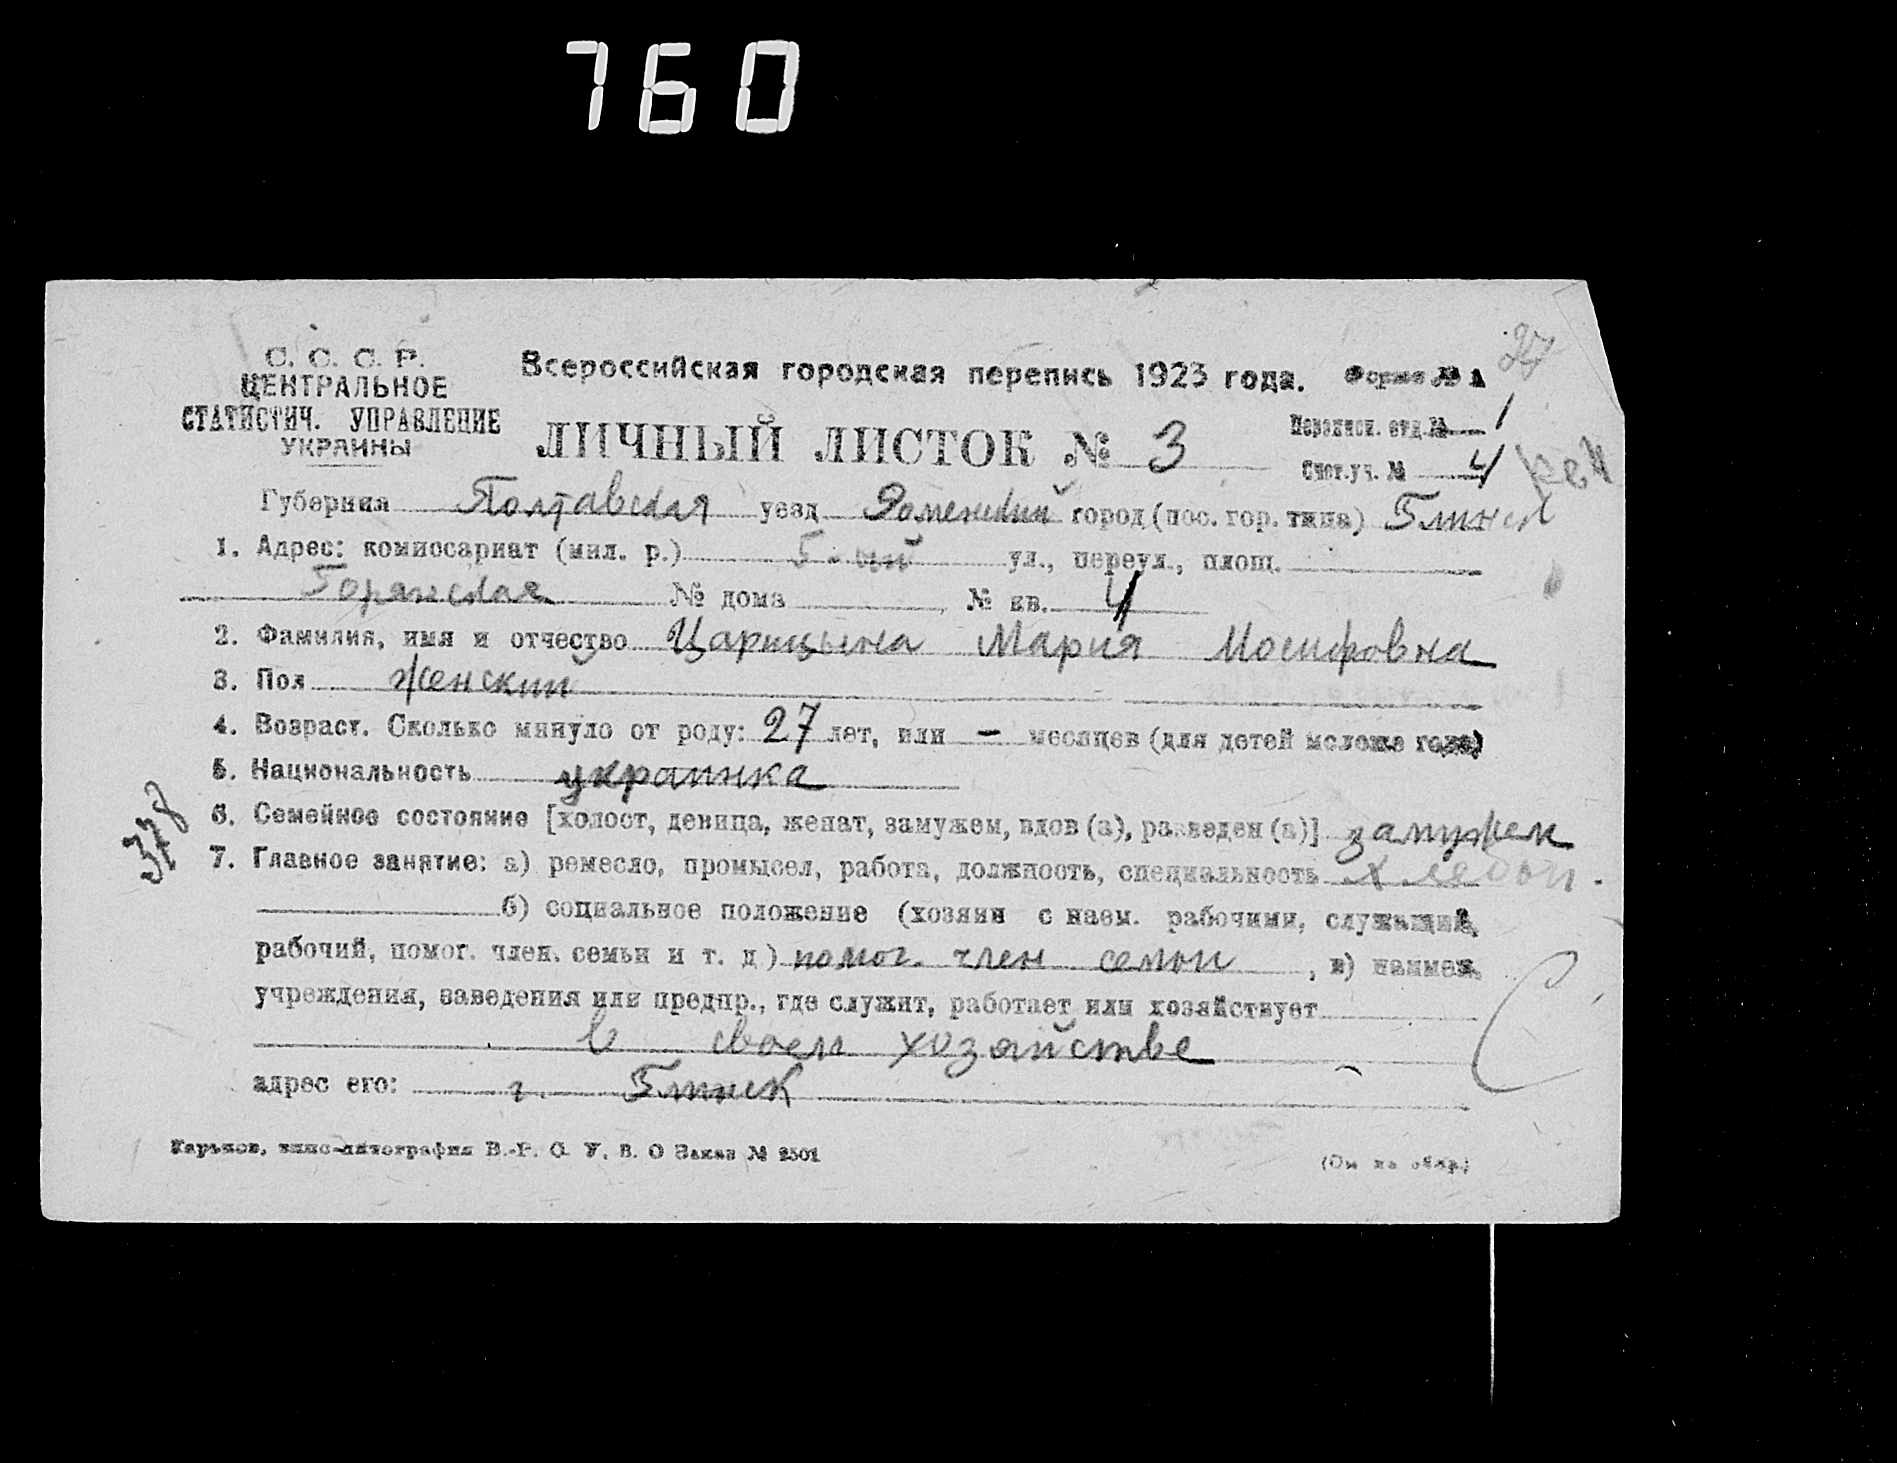 760
С. С. С. Р.
ЦЕНТРАЛЬНОЕ
СТАТИСТИЧ. УПРАВЛЕНИЕ
УКРАИНЫ
Всероссийская городская перепись 1923 года. Форма № 1
27
ЛИЧНЫЙ ЛИСТОК № 3
Переписн. отд. № 1
Счет. уч. № 4
Губерния Полтавская уезд Роменский город (пос. гор. типа) Глинск
1. Адрес: комиссариат (мил. р.) 5-ый ул., переул., площ.
№ дома № кв. 4
2. Фамилия, имя и отчество Царицына Мария Иосифовна
3. Пол Женский
4. Возраст. Сколько минуло от роду: 27 лет, или - месяцев (для детей моложе года)
5. Национальность украинка
378
6. Семейное состояние [холост, девица, женат, замужем, вдов (а), разведен (а)] замужем
7. Главное занятие: а) ремесло, промысел, работа, должность, специальность хлебоп.
б) социальное положение (хозяин с наем. рабочими, служащий,
рабочий, помог. член. семьи и т. д) помог. член семьи, в) наимен.
учреждения, заведения или предпр., где служит, работает или хозяйствует
в своем хозяйстве
адрес его: г. Глинск
Харьков, типо-литография В.-Р. О. У. В. О Заказ № 2501
(См на обор.)